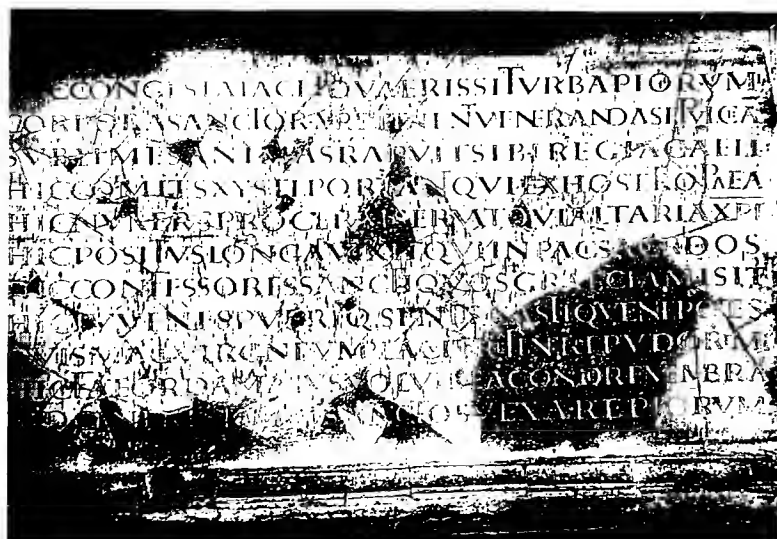 CONGESTA IACET QVAERIS SI TVRBA PIORVM
CORPORA SANCTORVM RETINENT VENERANDA SEPVLCRA
SVBLIMES ANIMAS RAPVIT SIBI REGIA CAELI
HIC COMITES XYSTI PORTANT QVI EX HOSTE TROPAEA
HIC NVMERVS PROCERVM SERVAT QVI ALTARIA XPI
HIC POSITVS LONGA VIXIT QVI IN PACE SACERDOS
HIC CONFESSORES SANCTI QVOS GRAECIA MISIT
HIC IVVENES PVERIQ SENES CASTIQVE NEPOTES
VIRGINEVM PLACVIT RETINERE PVDOREM
HIC FATEOR DAMASVS VOLVI MEA CONDERE MEMBRA
SANCTOS VEXARE PIORVM